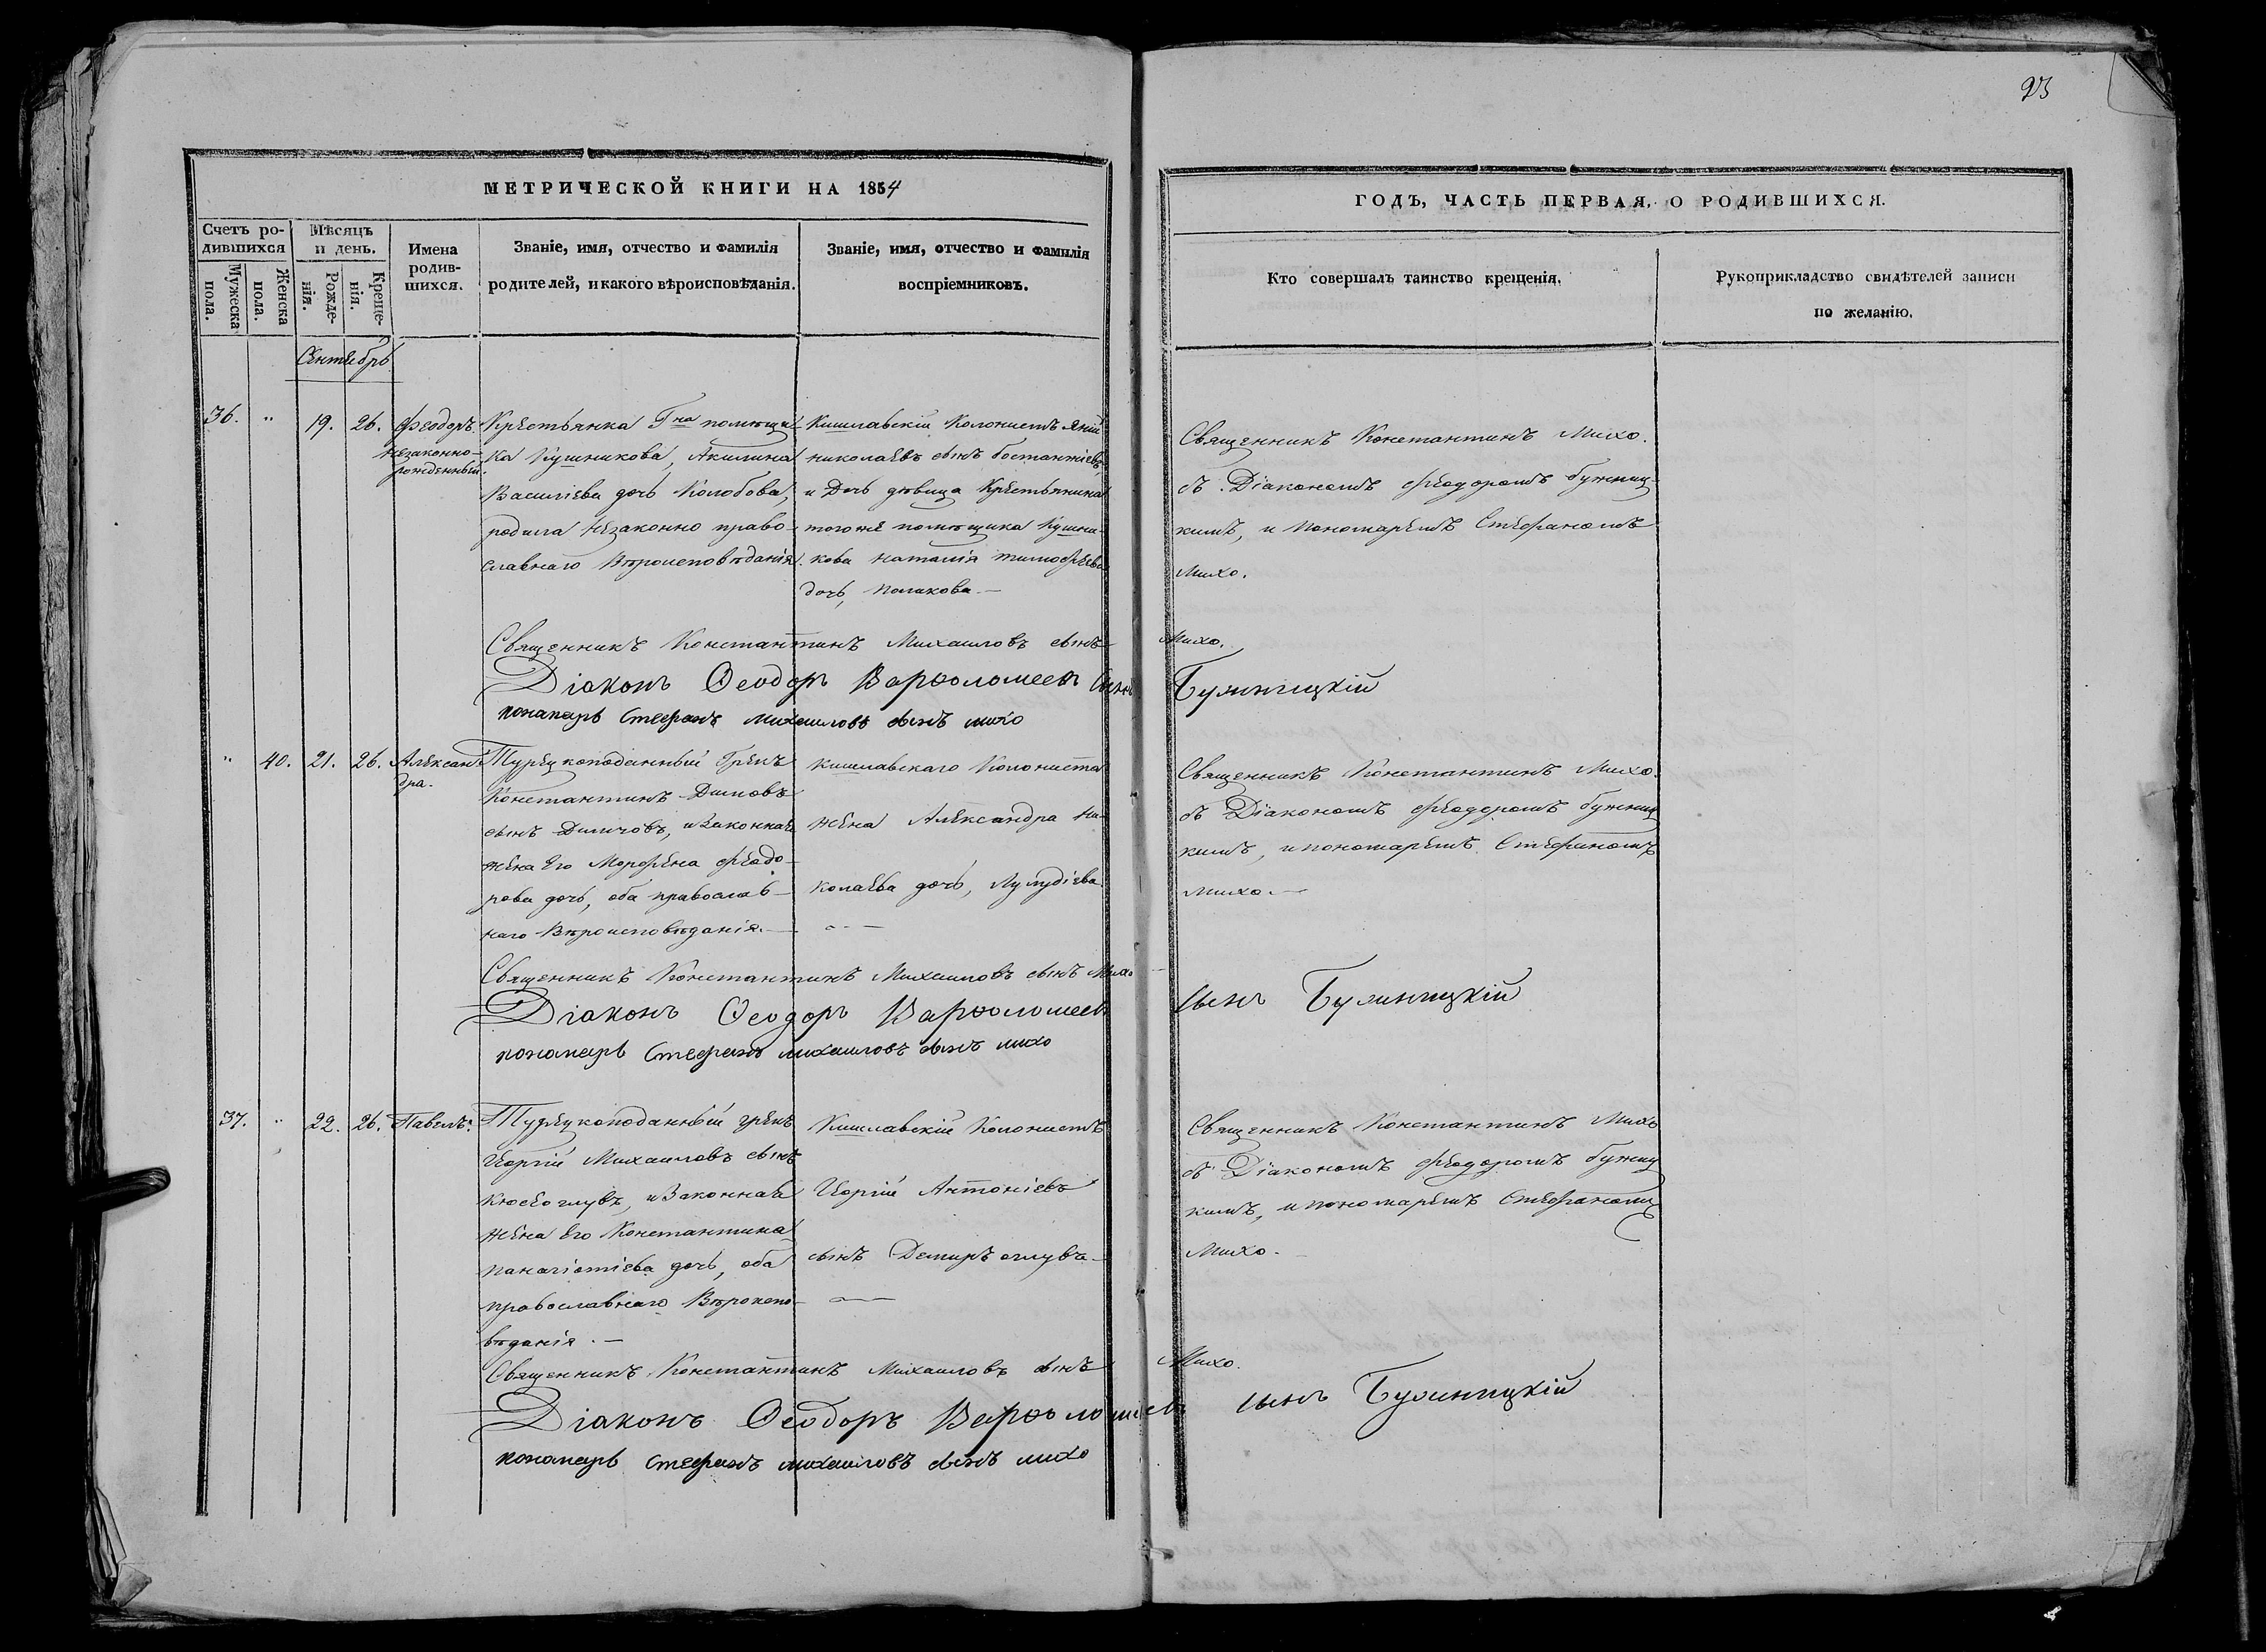 23
МЕТРИЧЕСКОЙ КНИГИ НА 1854
ГОДЪ, ЧАСТЬ ПЕРВАЯ, О РОДИВШИХСЯ.
Счетъ ро-
дившихся
Мужеска
пола.
Женска
пола.
Мѣсяцъ
и день.
Рожде-
нія.
Креще-
нія.
Имена
родив-
шихся.
Званіе, имя, отчество и фамилія
родителей, и какого вѣроисповѣданія.
Званіе, имя, отчество и фамилія
воспріемниковъ.
Кто совершалъ таинство крещенія.
Рукоприкладство свидѣтелей записи
по желанію.
Сентябрь
36. " 19. 26. Феодоръ.
незаконно-
рожденный.
Крестьянка Гна помѣщи-
ка Кушникова, Акилина
Василіева дочь Колобова,
родила незаконно право-
славнаго Вѣроисповѣданія.
Кишлавскій Колонистъ
николаевъ сынъ бостанжіевъ,
и Дочь дѣвица Крестьянина
тогоже помѣщика Кушни-
кова наталія тимофеева
дочь, полякова.—
Священникъ Константинъ Михо.
съ Діакономъ феодоромъ
кимъ, и пономаремъ Стефаномъ
Михо.
Священникъ Константинъ Михаиловъ сынъ Михо.
Діаконъ Ѳеодоръ Варѳоломеевъ сынъ
понамарь стефанъ михаиловъ сынъ михо
" 40. 21. 26. Алексан-
дра.
Турецкоподанный Грекъ
Константинъ Димовъ
сынъ Димчовъ, и Законная
жена Его Морфена феодо-
рова дочь, оба православ-
наго Вѣроисповѣданія.—
кишлавскаго Колониста
жена Александра Ни-
колаева дочь, Лулудіева
Священникъ Константинъ Михо.
съ Діакономъ феодоромъ
кимъ, и пономаремъ Стефаномъ
Михо.—
Священникъ Константинъ Михаиловъ сынъ Михо
Діаконъ Ѳеодоръ Варѳоломеевъ сынъ
понамарь Стефанъ михаиловъ сынъ михо
37. " 22. 26. Павелъ.
Турецкоподанный грекъ
Георгій Михаиловъ сынъ
Кюсеоглувъ, и Законная
жена Его Константина
панагіотіева дочь, оба
православнаго Вѣроиспо-
вѣданія.—
Кишлавскій Колонистъ
Георгій Антоніевъ
сынъ Демиръ оглувъ—
Священникъ Константинъ Михо
съ Діакономъ феодоромъ
кимъ, и пономаремъ Стефаномъ
Михо.
Священникъ Константинъ Михаиловъ сынъ Михо.
Діаконъ Ѳеодоръ Варѳоломеевъ сынъ
понамарь стефанъ михаиловъ сынъ михо